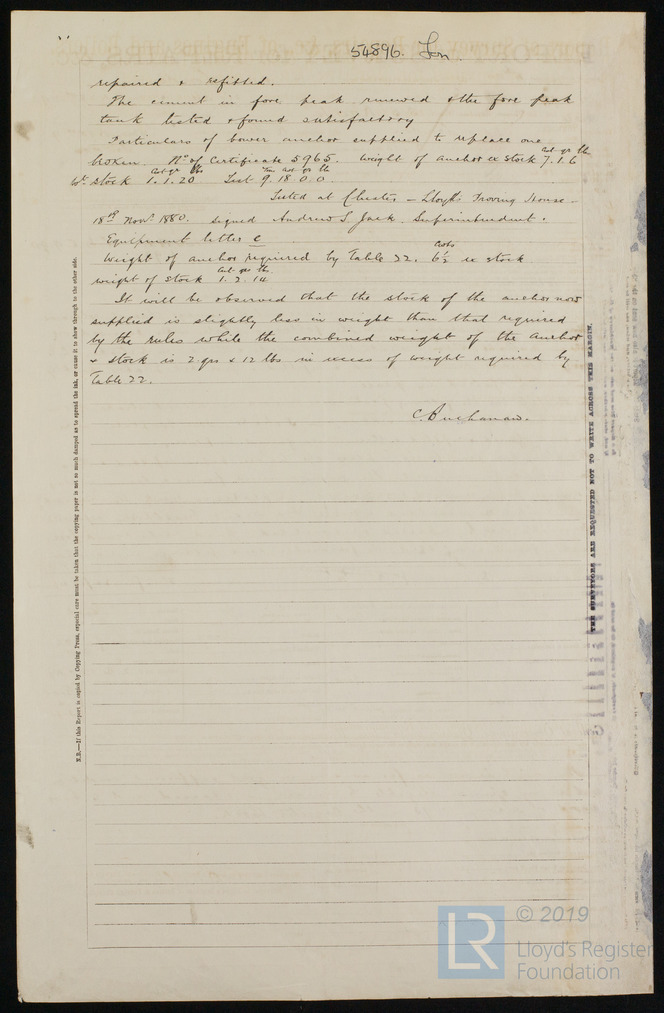 54896. Lon.
repaired & refitted.
The cement in fore peak renewed & the fore peak
tank tested & found satisfactory
Particulars of bower anchor supplied to replace one
cwt qr lbs
broken. No of Certificate 5965. Weight of anchor ex stock 7.1.6
cwt qr lbs Tons cwt qr lbs
Wt. stock 1.1.20 Test 9.18.0.0.
Tested at Chester – Lloyd's Proving House.
18th Novr 1880. signed Andrew S. Jack. Superintendent.
Equipment letter C
cwts
Weight of anchor required by Table 22. 6½ ex stock
cwt qrs lbs
weight of stock 1.2.14
It will be observed that the stock of the anchor now
supplied is slightly less in weight than that required
by the rules while the combined weight of the anchor
& stock is 2 qrs & 12 lbs in excess of weight required by
Table 22.
C. Buchanan.
N.B.—If this Report is copied by Copying Press, especial care must be taken that the copying paper is not so much damped as to spread the ink, or cause it to show through to the other side.
THE SURVEYORS ARE REQUESTED NOT TO WRITE ACROSS THIS MARGIN.
LR
© 2019
Lloyd's Register
Foundation